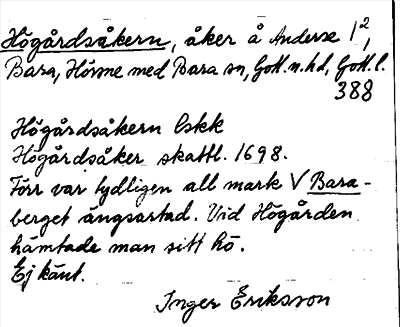 Högårdsåkern, åker å Anderse 1²,
Bara, Hörsne med Bara sn, Gotl.n.hd, Gotl.l.
388
Högårdsåkern Eskk
Högårdsåker skattl. 1698.
Förr var tydligen all mark V Bara-
berget ängsartad. Vid Högården
hämtade man sitt hö.
Ej känt.
Inger Eriksson